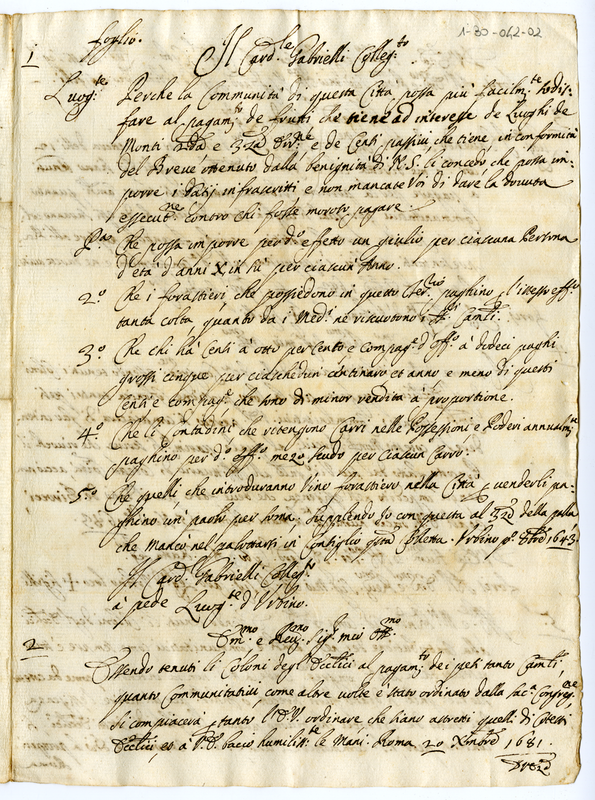 1-30-042-02
foglio.
1 Il Card.le Gabrielli Colleg.to
Luog.te Perche la Communità di questa Città possa più facilm.te sodis-
fare al pagam.to de frutti che tiene ad interesse de Luoghi de
Monti e de Censi passivi che tiene, in conformità
del Breve ottenuto dalla benignità di N.S. li concedo che possa im-
porre i datij infrascritti e non mancate Voi di dare la dovuta
essecut.ne contro chi fosse moroso pagare.
P.mo Che possa imporre per d.o effetto un giulio per ciascuna Persona
d'età d'anni X in sù per ciascun Anno.
2.o Che i forastieri che possiedono in questo Ter.rio paghino l'istesso
tanta colta, quanto da i Med.i ne riscuotono
3.o Che chi hà Censi à otto per cento e compag.e à dideci paghi
grossi cinque per ciaschedun centinaro et anno e meno di questi
Censi e compag.e che sono di minor vendita à proportione.
4.o Che li Contadini che ritengono Carri nelle Possessioni e Poderi annualm.te
paghino per d.o eff.o mezo scudo per ciascun Carro.
5.o Che quelli che introduranno Vino forastiero nella Città p venderli pa-
ghino un paolo per soma, supplendo Io con questa al della palla
che mancò nel pallottarsi in Consiglio Urbino p.o 1643.
Il Card. Gabrielli Colleg.to
à pede Luog.te d'Urbino.
2 Em.mo e Rev.mo Sig.r mio
Essendo tenuti li Coloni degl'Eccl.ici al pagam.to dei pesi tanto Cam.li
quanto Communitativi, come altre volte è stato ordinato dalla Sac. Congreg.ne
si compiacerà ptanto V.S. ordinare che siano astretti quelli di cotesti
Eccl.ici, et à V.S. bacio humiliss.te le Mani. Roma 20 Xmbre 1681.